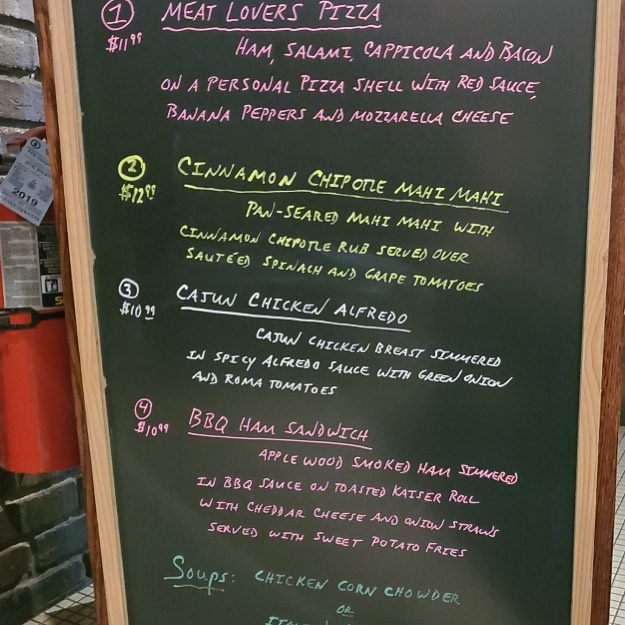 1 MEAT LOVERS PIZZA
$11.99
HAM, SALAMI, CAPPICOLA AND BACON
ON A PERSONAL PIZZA SHELL WITH RED SAUCE,
BANANA PEPPERS AND MOZZARELLA CHEESE
2 CINNAMON CHIPOTLE MAHI MAHI
$12.99
PAN-SEARED MAHI MAHI WITH
CINNAMON CHIPOTLE RUB SERVED OVER
SAUTÉED SPINACH AND GRAPE TOMATOES
3 CAJUN CHICKEN ALFREDO
$10.99
CAJUN CHICKEN BREAST SIMMERED
IN SPICY ALFREDO SAUCE WITH GREEN ONION
AND ROMA TOMATOES
4 BBQ HAM SANDWICH
$10.99
APPLE WOOD SMOKED HAM SIMMERED
IN BBQ SAUCE ON TOASTED KAISER ROLL
WITH CHEDDAR CHEESE AND ONION STRAWS
SERVED WITH SWEET POTATO FRIES
Soups: CHICKEN CORN CHOWDER
OR
2019